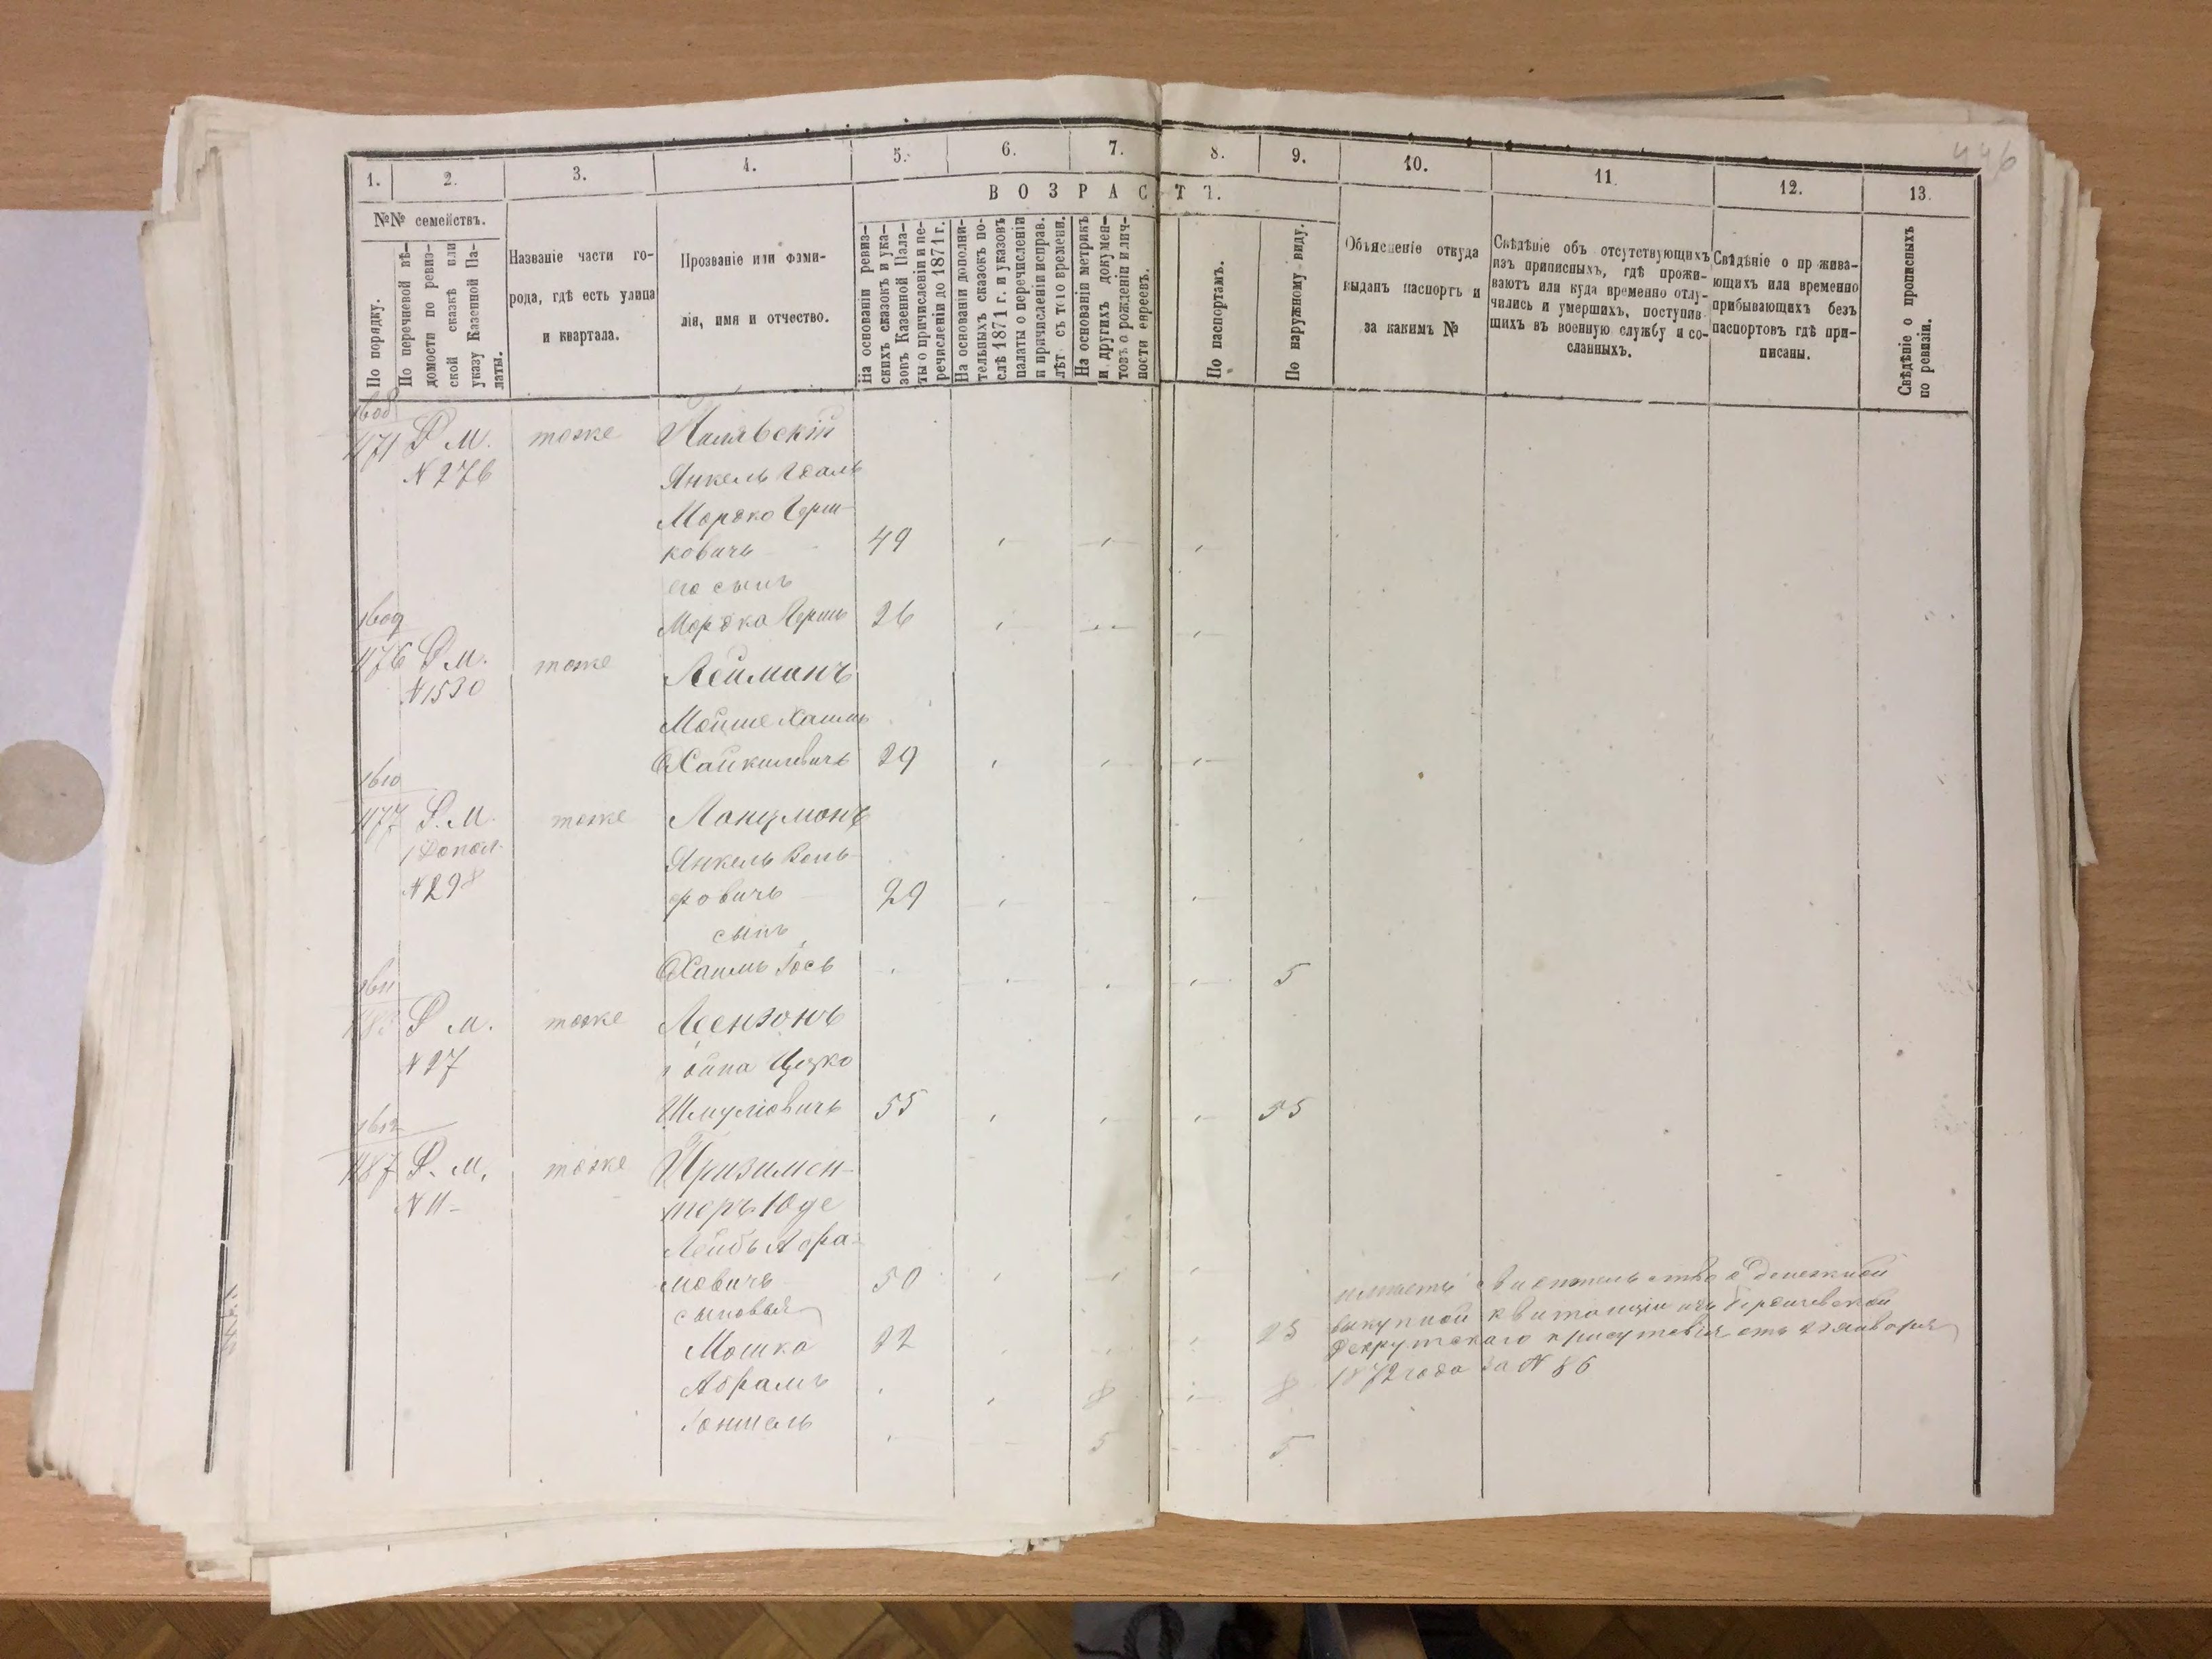 446
1. 2. 3. 4. 5. 6. 7. 8. 9. 10. 11. 12. 13.
№№ семействъ.
В О З Р А С Т Ъ.
По порядку.
По перечневой вѣ-
домости по ревиз-
ской сказкѣ или
указу Казенной Па-
латы.
Названіе части го-
рода, гдѣ есть улица
и квартала.
Прозваніе или фами-
лія, имя и отчество.
На основаніи ревиз-
скихъ сказокъ и ука-
зовъ Казенной Пала-
ты о причисленіи и пе-
речисленіи до 1871 г.
На основаніи дополни-
тельныхъ сказокъ по-
слѣ 1871 г. и указовъ
палаты о перечисленіи
и причисленіи исправ.
лѣт. съ того времени.
На основаніи метрикъ
и другихъ докумен-
товъ о рожденіи и лич-
ности евреевъ.
По паспортамъ.
По наружному виду.
Объясненіе откуда
выданъ паспортъ и
за какимъ №
Свѣдѣніе объ отсутствующихъ
изъ приписныхъ, гдѣ прожи-
ваютъ или куда временно отлу-
чились и умершихъ, поступив-
шихъ въ военную службу и со-
сланныхъ.
Свѣдѣніе о прожива-
ющихъ или временно
прибывающихъ безъ
паспортовъ гдѣ при-
писаны.
Свѣдѣніе о прописныхъ
по ревизіи.
1608
1171 Р. М. тоже
N 276 Янкель Гдаль
Мордко Герш-
ковичъ 49
его сынъ
1609 Мордко Гершъ 26
1176 Р. М. тоже Лейманъ
N 1530
Мойше Хаимъ
29
1610
1177 Р. М. тоже Лануманъ
1 Допол.
N 298 Янкель Воль-
фовичъ 29
сынъ
Хаимъ Іось 5
1611
Р. М. тоже
N 27 Ицко
Шмулювичъ 55 55
1612
1187 Р. М. тоже Призимен-
N 11 теръ Юде
Лейбъ Абра-
мовичъ 50
сыновья
Мошко 22 23
Абрамъ 8 8
5 5
имѣетъ свидѣтельство о денежной
выкупной квитанціи изъ Бердичевскаго
Рекрутскаго присутствія отъ 22 января
1872 года за N 86